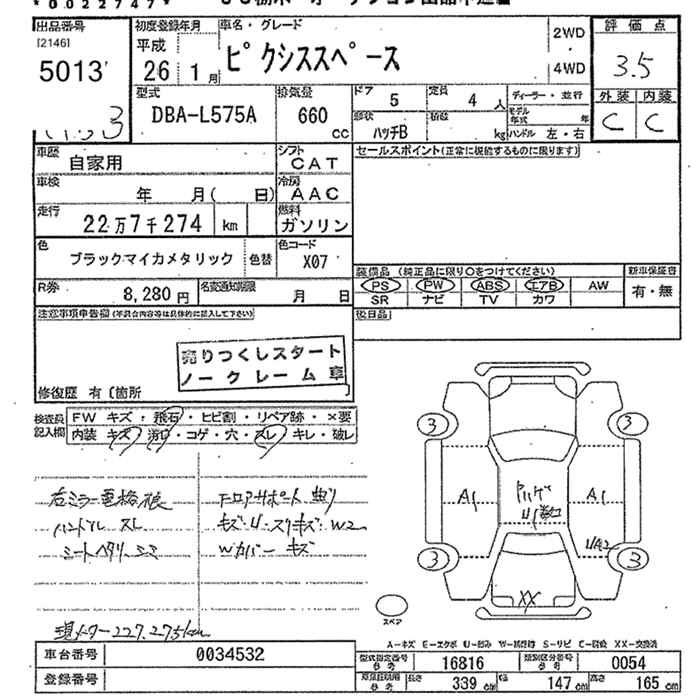 *0022747*
出品番号
[2146]
5013
初度登録年月
平成
26 1月
車名・グレード
ピクシススペース
2WD
4WD
評価点
3.5
外装 内装
C C
型式
DBA-L575A
排気量
660 cc
ドア 5
定員 4人
形状 ハッチB
積載 kg
ディーラー・並行
モデル年式 年
ハンドル 左・右
車歴 自家用
シフト CAT
セールスポイント(正常に機能するものに限ります)
車検 年 月( 日)
冷房 AAC
走行 22万7千274 km
燃料 ガソリン
色 ブラックマイカメタリック 色替
色コード X07
装備品 (純正品に限り○をつけてください)
新車保証書
PS PW ABS エアB AW
有・無
SR ナビ TV カワ
R券 8,280円
名変通知期限 月 日
後日品
注意事項申告欄(不具合内容等は具体的に記入して下さい)
売りつくしスタート
ノークレーム車
修復歴 有〔箇所 〕
検査員
記入欄
FW キズ・飛石・ヒビ割・リペア跡・×要
内装 キズ・汚レ・コゲ・穴・スレ・キレ・破レ
ハンドル スレ
キズ
Wカバー キズ
現メーター 227,275km
3 3
A1 A1
U
3 3
XX
スペア
A-キズ E-エクボ U-凹み W-補修跡 S-サビ C-腐蝕 XX-交換済
車台番号 0034532
型式指定番号 参考 16816
類別区分番号 参考 0054
登録番号
参考
長さ 339 cm
幅 147 cm
高さ 165 cm